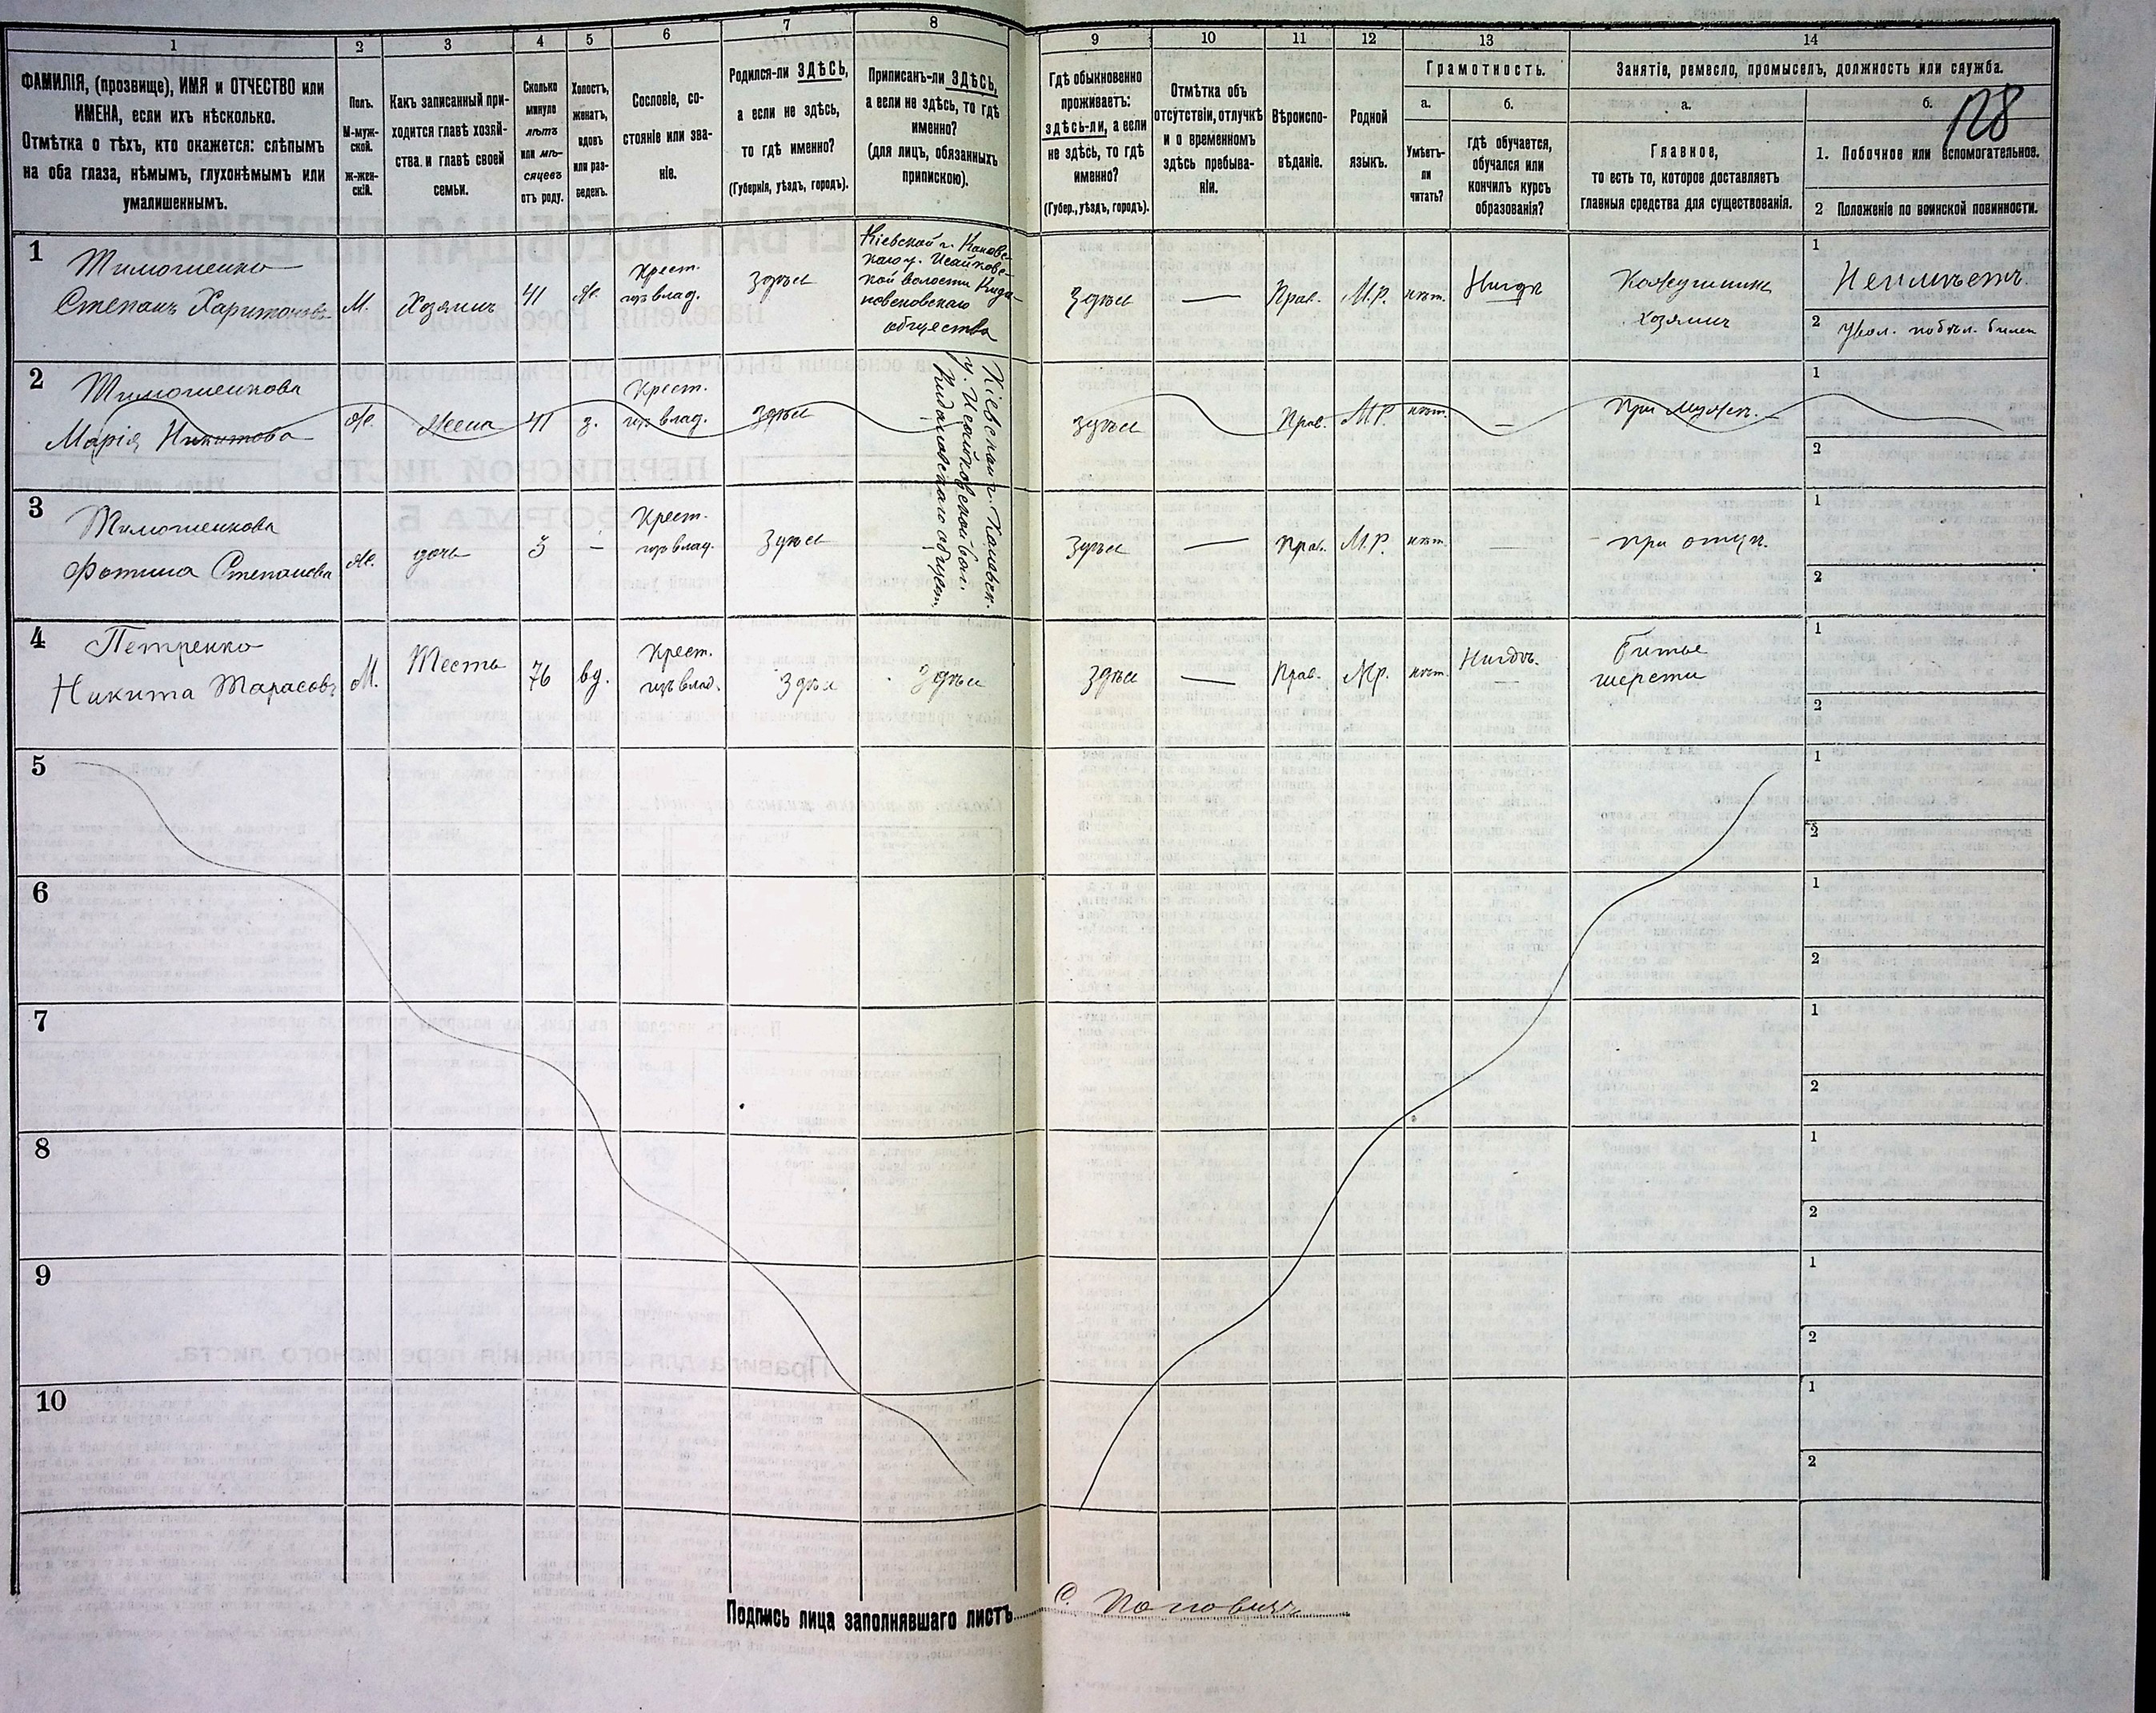 1
2
3
4
5
6
7
8
9
10
11
12
13
14
128
ФАМИЛІЯ, (прозвище), ИМЯ и ОТЧЕСТВО или
ИМЕНА, если ихъ нѣсколько.
Отмѣтка о тѣхъ, кто окажется: слѣпымъ
на оба глаза, нѣмымъ, глухонѣмымъ или
умалишеннымъ.
Полъ.
М-муж-
ской.
ж-жен-
скій.
Какъ записанный при-
ходится главѣ хозяй-
ства и главѣ своей
семьи.
Сколько
минуло
лѣтъ
или мѣ-
сяцевъ
отъ роду.
Холостъ,
женатъ,
вдовъ
или раз-
веденъ.
Сословіе, со-
стояніе или зва-
ніе.
Родился-ли ЗДѢСЬ,
а если не здѣсь,
то гдѣ именно?
(Губернія, уѣздъ, городъ).
Приписанъ-ли ЗДѢСЬ,
а если не здѣсь, то гдѣ
именно?
(для лицъ, обязанныхъ
припискою).
Гдѣ обыкновенно
проживаетъ:
здѣсь-ли, а если
не здѣсь, то гдѣ
именно?
(Губер., уѣздъ, городъ).
Отмѣтка объ
отсутствіи, отлучкѣ
и о временномъ
здѣсь пребыва-
ніи.
Вѣроиспо-
вѣданіе.
Родной
языкъ.
Грамотность.
а.
Умѣетъ-
ли
читать?
б.
гдѣ обучается,
обучался или
кончилъ курсъ
образованія?
Занятіе, ремесло, промыселъ, должность или служба.
а.
Главное,
то есть то, которое доставляетъ
главныя средства для существованія.
б.
1. Побочное или вспомогательное.
2 Положеніе по воинской повинности.
1
Тимошенко
Степанъ Харитоновъ
М.
Хозяинъ
41
Ж.
Крест.
изъ влад.
Здѣсь
Кіевской г. Каневс-
каго у. Исайковс-
кой волости Кида-
новсковскаго
общества
Здѣсь
—
Прав.
М.Р.
нѣт.
Нигдѣ
Кожушникъ
хозяинъ
1
Неимѣетъ.
2
Увол. по бѣл. билет
2
Тимошенкова
Марія Никитова
Ж.
Жена
41
з.
Крест.
изъ влад.
Здѣсь
Кіевской г. Каневск.
у. Исайковской вол.
Кидановскаго общест.
Здѣсь
Прав.
М.Р.
нѣт.
—
При мужѣ.
1
2
3
Тимошенкова
Фотина Степанова
Ж.
дочь
3
—
Крест.
изъ влад.
Здѣсь
Здѣсь
—
Прав.
М.Р.
нѣт.
—
при отцѣ.
1
2
4
Петренко
Никита Тарасовъ
М.
Тесть
76
вд.
Крест.
изъ влад.
Здѣсь
Здѣсь
Здѣсь
—
Прав.
М.р.
нѣт.
Нигдѣ.
Битье
шерсти
1
2
5
1
2
6
1
2
7
1
2
8
1
2
9
1
2
10
1
2
Подпись лица заполнявшаго листъ
С. Поповичъ